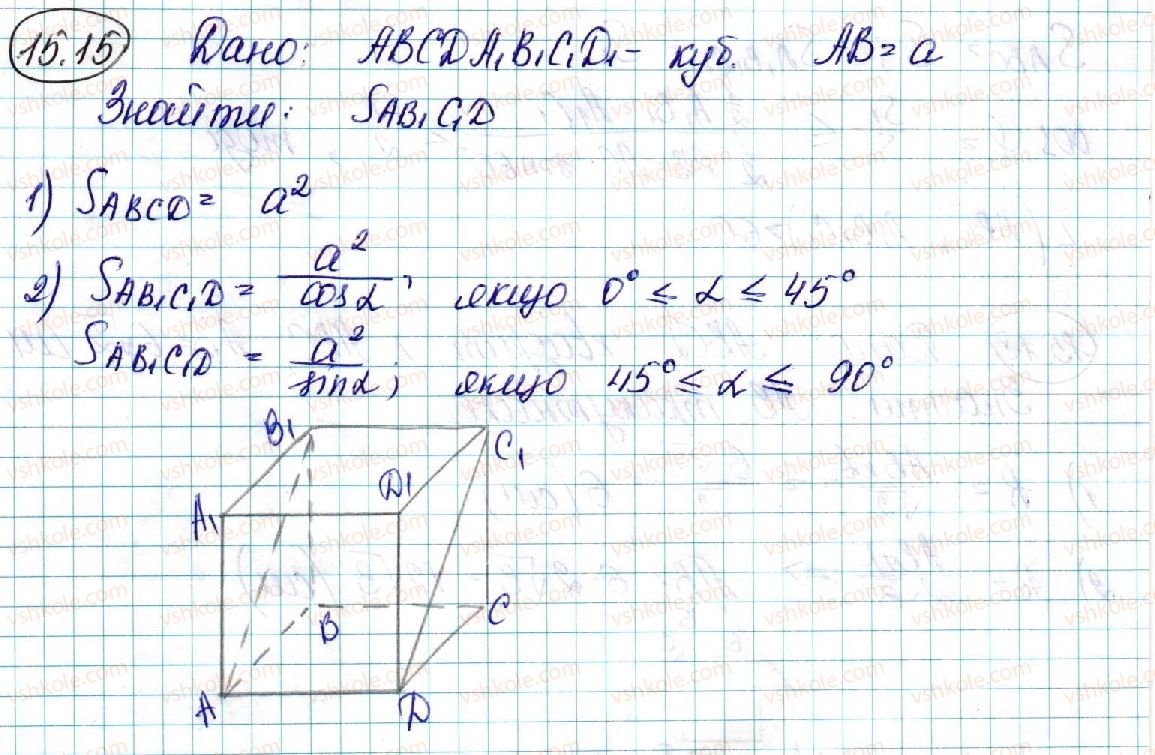 15.15 Дано: ABCDA₁B₁C₁D₁ - куб. AB = a
Знайти: SAB₁C₁D
1) SABCD = a²
2) SAB₁C₁D = a²/cosα; якщо 0° ≤ α ≤ 45°
SAB₁C₁D = a²/sinα; якщо 45° ≤ α ≤ 90°
B₁ C₁
A₁ D₁
B C
A D
vshkole.com